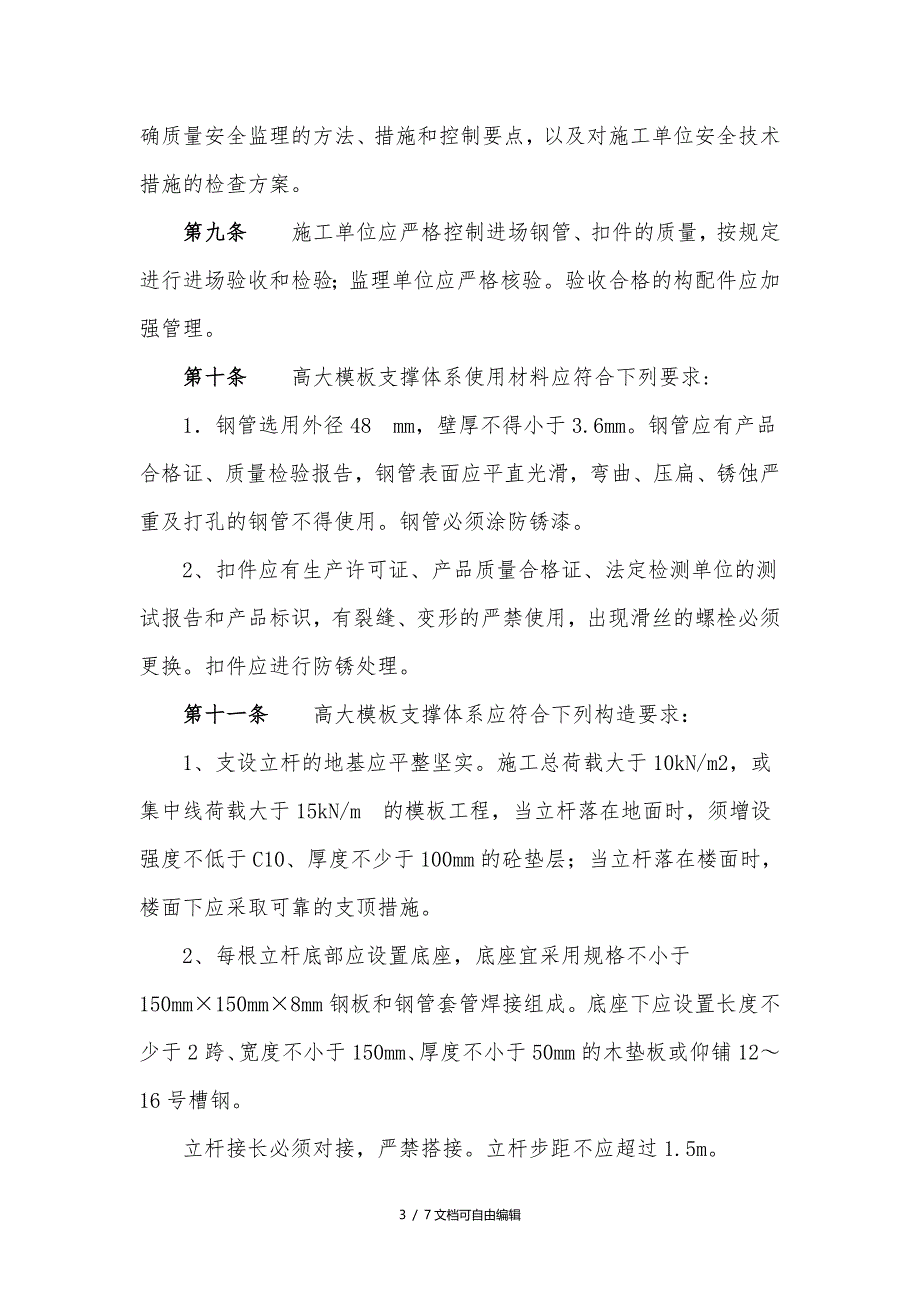 确质量安全监理的方法、措施和控制要点，以及对施工单位安全技术
措施的检查方案。
第九条　　施工单位应严格控制进场钢管、扣件的质量，按规定
进行进场验收和检验；监理单位应严格核验。验收合格的构配件应加
强管理。
第十条　　高大模板支撑体系使用材料应符合下列要求：
1．钢管选用外径48　mm，壁厚不得小于3.6mm。钢管应有产品
合格证、质量检验报告，钢管表面应平直光滑，弯曲、压扁、锈蚀严
重及打孔的钢管不得使用。钢管必须涂防锈漆。
2、扣件应有生产许可证、产品质量合格证、法定检测单位的测
试报告和产品标识，有裂缝、变形的严禁使用，出现滑丝的螺栓必须
更换。扣件应进行防锈处理。
第十一条　　高大模板支撑体系应符合下列构造要求：
1、支设立杆的地基应平整坚实。施工总荷载大于10kN/m2，或
集中线荷载大于15kN/m　的模板工程，当立杆落在地面时，须增设
强度不低于C10、厚度不少于100mm的砼垫层；当立杆落在楼面时，
楼面下应采取可靠的支顶措施。
2、每根立杆底部应设置底座，底座宜采用规格不小于
150mm×150mm×8mm钢板和钢管套管焊接组成。底座下应设置长度不
少于2跨、宽度不小于150mm、厚度不小于50mm的木垫板或仰铺12～
16号槽钢。
立杆接长必须对接，严禁搭接。立杆步距不应超过1.5m。
3 / 7文档可自由编辑